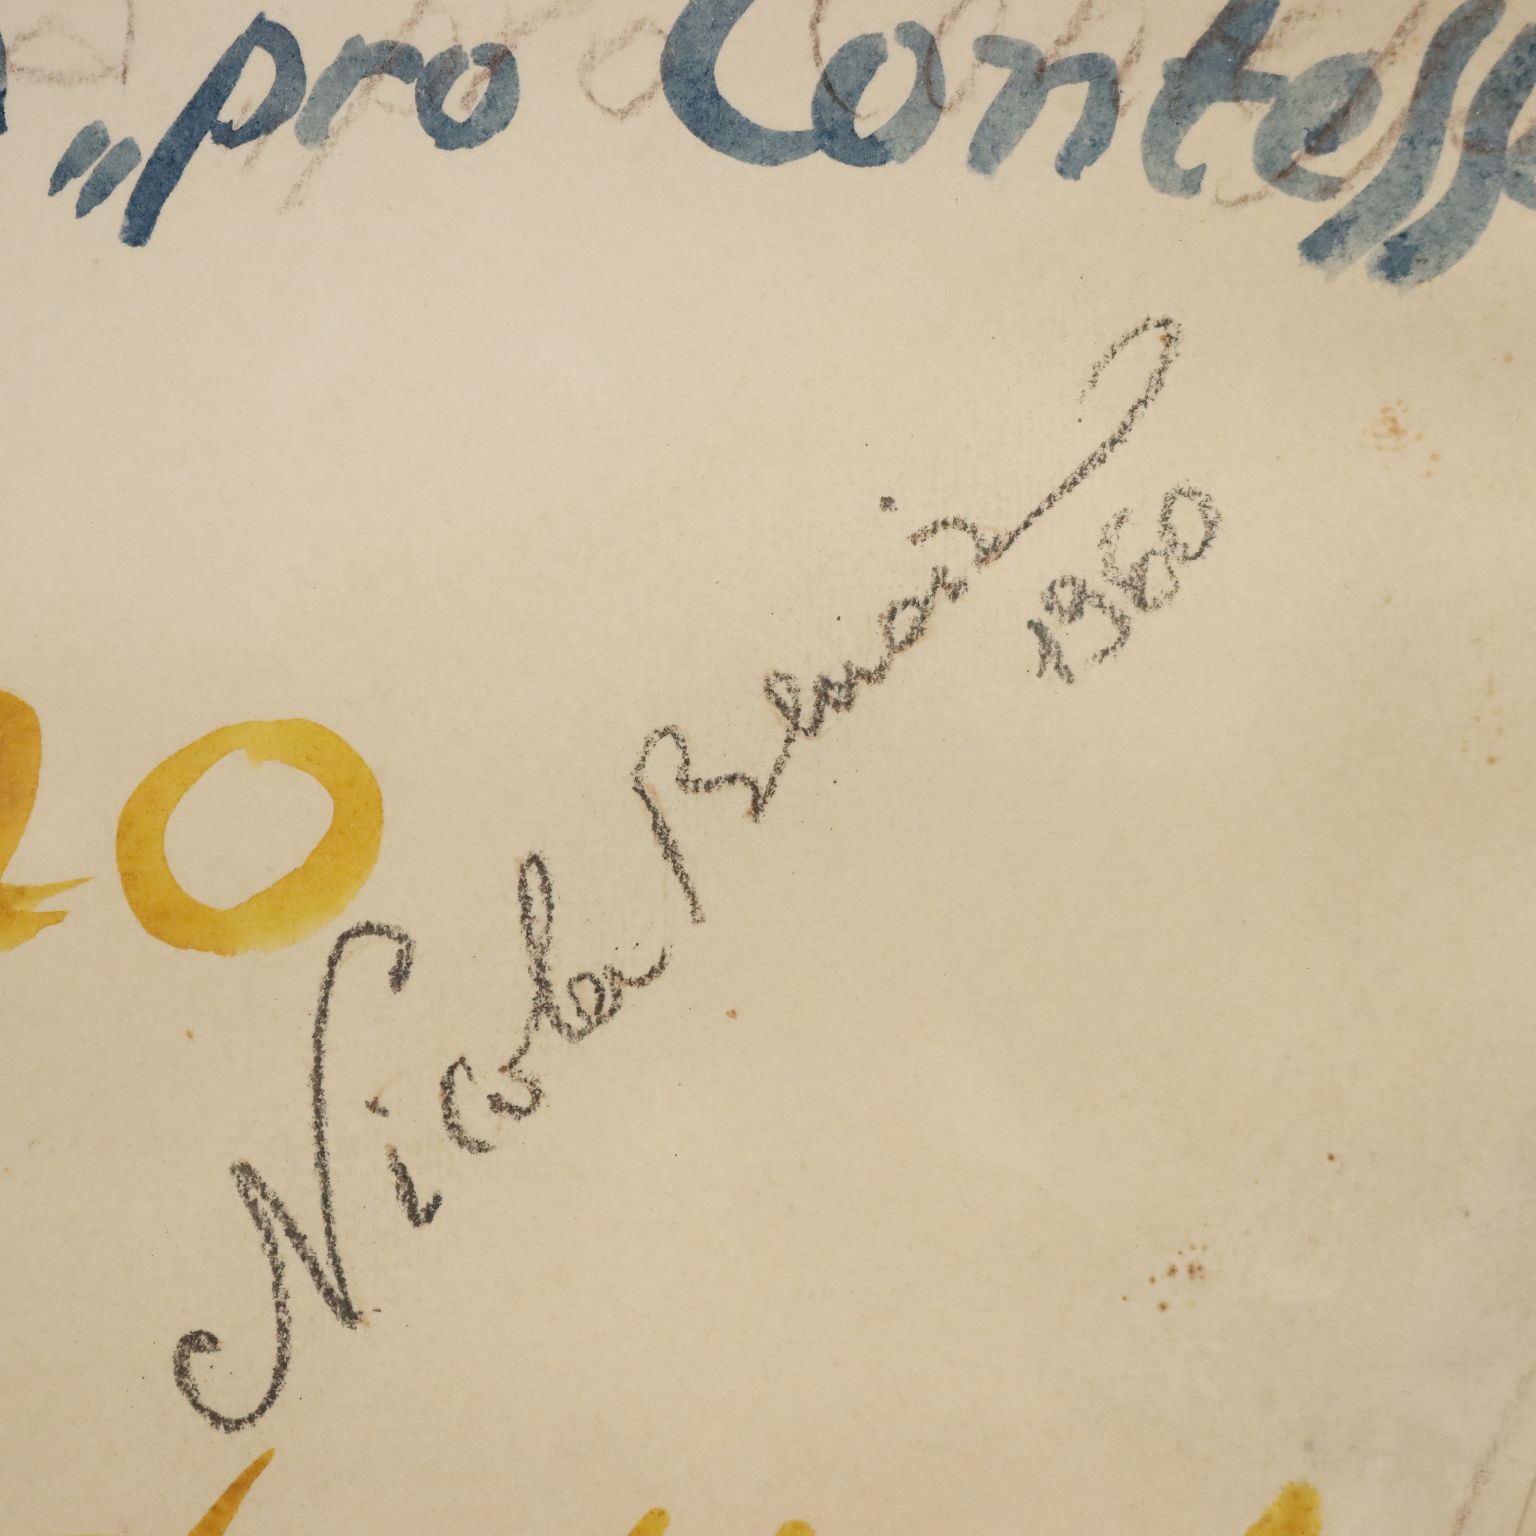 „pro Contesse
20
Nicola Benois
1960